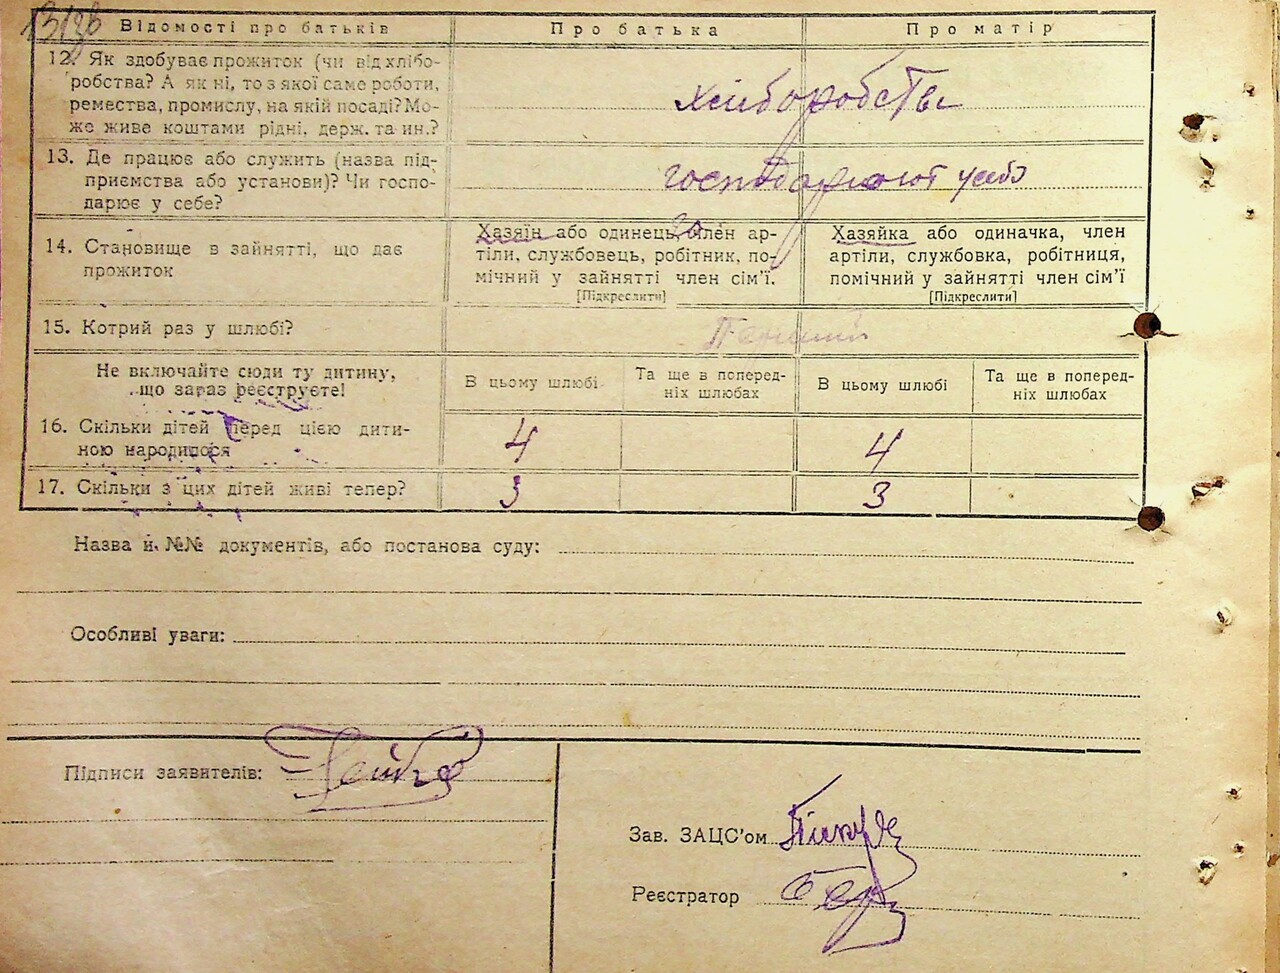 Відомості про батьків
Про батька
Про матір
12. Як здобуває прожиток (чи від хлібо-
робства? А як ні, то з якої саме роботи,
ремества, промислу, на якій посаді? Мо-
же живе коштами рідні, держ. та ин.?
хліборобства
13. Де працює або служить (назва під-
приємства або установи)? Чи госпо-
дарює у себе?
господарюют у себе
14. Становище в зайнятті, що дає
прожиток
Хазяїн або одинець, член ар-
тіли, службовець, робітник, по-
мічний у зайнятті член сім'ї.
[Підкреслити]
Хазяйка або одиначка, член
артіли, службовка, робітниця,
помічний у зайнятті член сім'ї
[Підкреслити]
15. Котрий раз у шлюбі?
Перший
Не включайте сюди ту дитину,
що зараз реєструєте!
В цьому шлюбі
Та ще в поперед-
ніх шлюбах
В цьому шлюбі
Та ще в поперед-
ніх шлюбах
16. Скільки дітей перед цією дити-
ною народилося
4
4
17. Скільки з цих дітей живі тепер?
3
3
Назва й №№ документів, або постанова суду:
Особливі уваги:
Підписи заявителів:
Зав. ЗАЦС'ом
Реєстратор